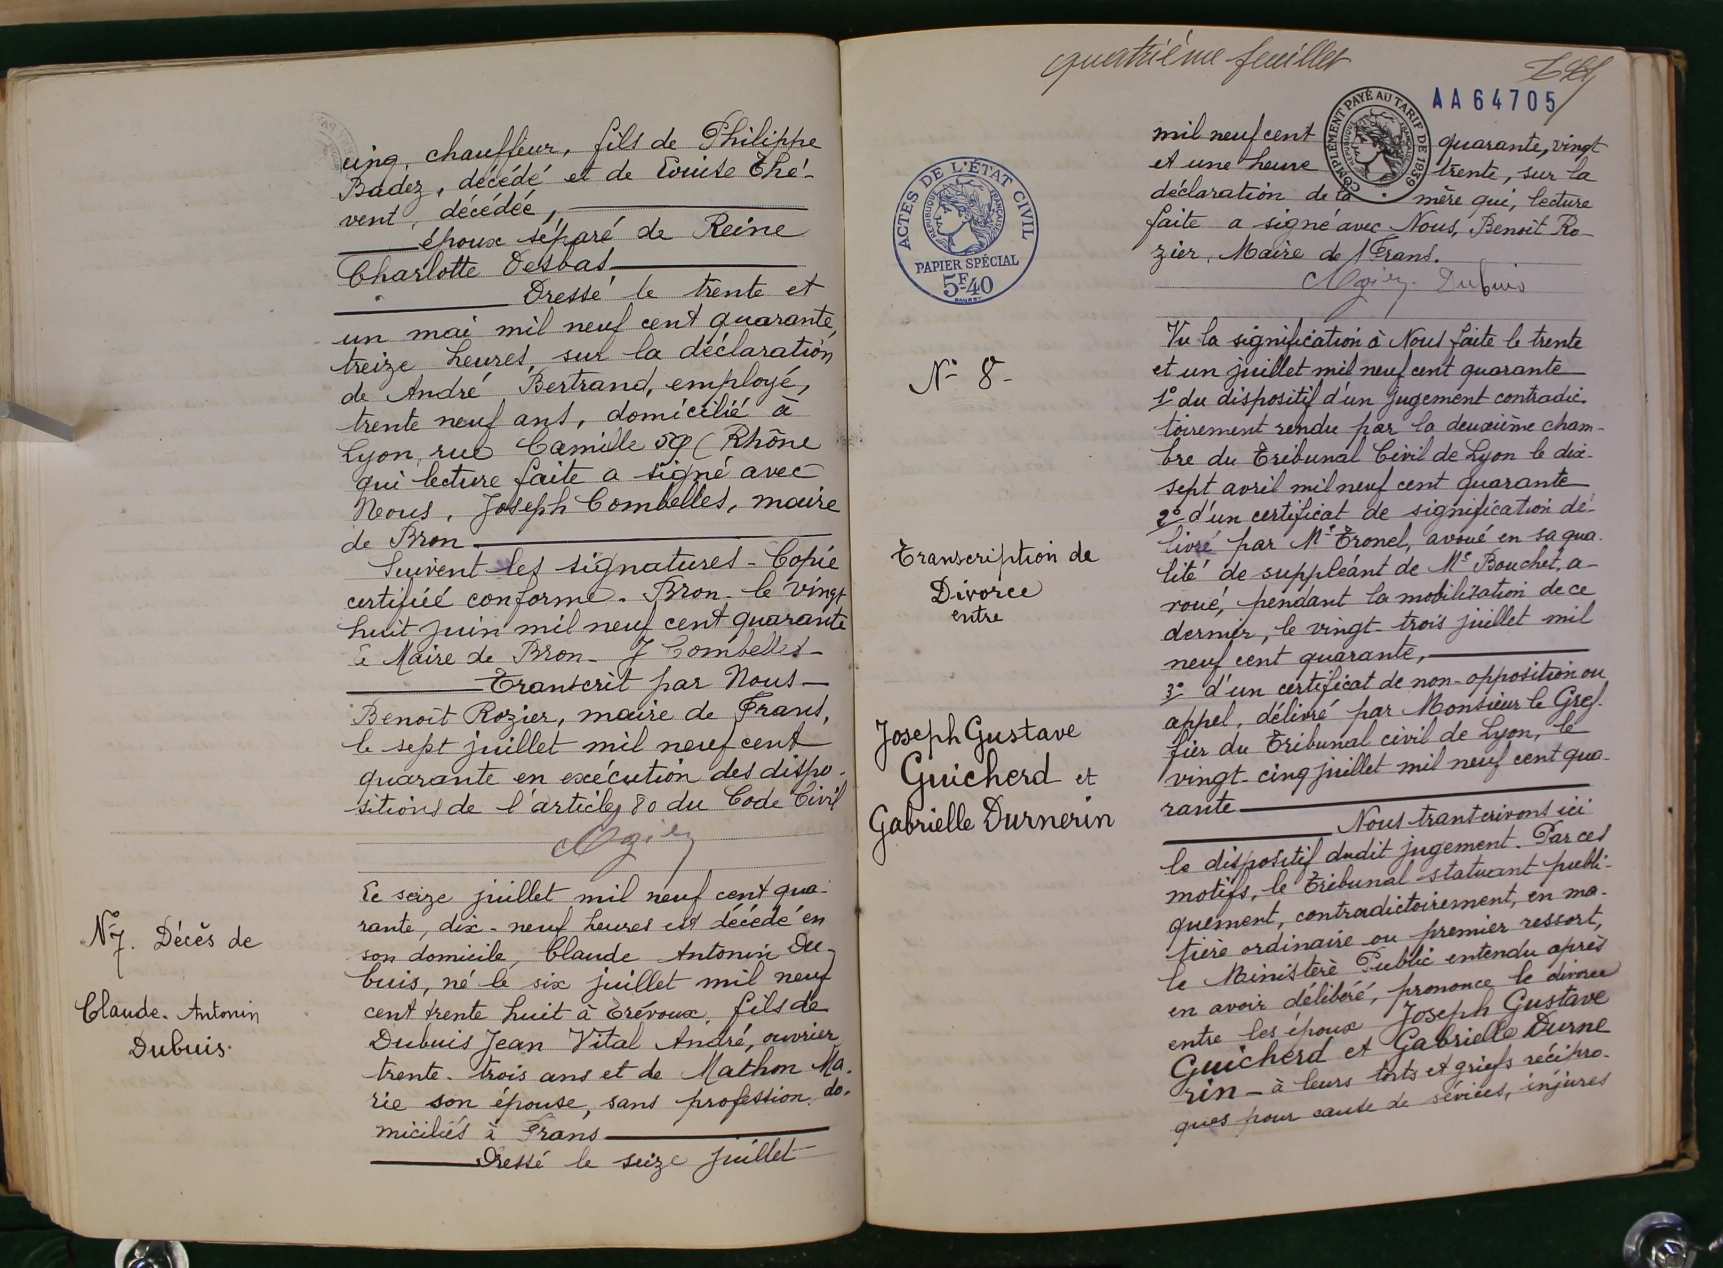 cinq, chauffeur, fils de Philippe
Badez, décédé et de Louise Thé-
vent, décédée,
époux séparé de Reine
Charlotte Desbas
Dressé le trente et
un mai mil neuf cent quarante,
treize heures, sur la déclaration
de André Bertrand, employé,
trente neuf ans, domicilié à
Lyon, rue Camille 59 (Rhône
qui lecture faite a signé avec
Nous, Joseph Combelles, maire
de Bron
Suivent les signatures - Copie
certifiée conforme. Bron. le vingt
huit juin mil neuf cent quarante
Le Maire de Bron - J Combelles -
Transcrit par Nous
Benoît Rozier, maire de Frans,
le sept juillet mil neuf cent
quarante en exécution des dispo-
sitions de l'article 80 du Code Civil
N 7. Décès de
Claude. Antonin
Dubuis.
Le seize juillet mil neuf cent qua-
rante, dix-neuf heures est décédé en
son domicile, Claude Antonin Du-
buis, né le six juillet mil neuf
cent trente huit à Trévoux, fils de
Dubuis Jean Vital André, ouvrier
trente-trois ans et de Mathon Ma-
rie son épouse, sans profession, do-
miciliés à Frans
Dressé le seize juillet
quatrième feuillet
AA64705
COMPLÉMENT PAYÉ AU TARIF DE 1939
RÉPUBLIQUE FRANÇAISE
ACTES DE L'ÉTAT CIVIL
RÉPUBLIQUE FRANÇAISE
PAPIER SPÉCIAL
5F40
mil neuf cent quarante, vingt
et une heure trente, sur la
déclaration de la mère qui, lecture
faite a signé avec Nous, Benoît Ro-
zier, Maire de Frans.
Dubuis
N° 8-
Transcription de
Divorce
entre
Joseph Gustave
Guicherd et
Gabrielle Durnerin
Vu la signification à Nous faite le trente
et un juillet mil neuf cent quarante
1° du dispositif d'un jugement contradic-
toirement rendu par la deuxième cham-
bre du Tribunal Civil de Lyon le dix-
sept avril mil neuf cent quarante
2° d'un certificat de signification dé-
livré par Me Tronel, avoué en sa qua-
lité de suppléant de Me Bouchet, a-
voué, pendant la mobilisation de ce
dernier, le vingt-trois juillet mil
neuf cent quarante,
3° d'un certificat de non-opposition ou
appel, délivré par Monsieur le Gref-
fier du Tribunal civil de Lyon, le
vingt-cinq juillet mil neuf cent qua-
rante
Nous transcrivons ici
le dispositif dudit jugement. Par ces
motifs, le Tribunal statuant publi-
quement, contradictoirement, en ma-
tière ordinaire ou premier ressort,
le Ministère Public entendu après
en avoir délibéré, prononce le divorce
entre les époux Joseph Gustave
Guicherd et Gabrielle Durne
rin - à leurs torts et griefs récipro-
ques pour cause de sévices, injures